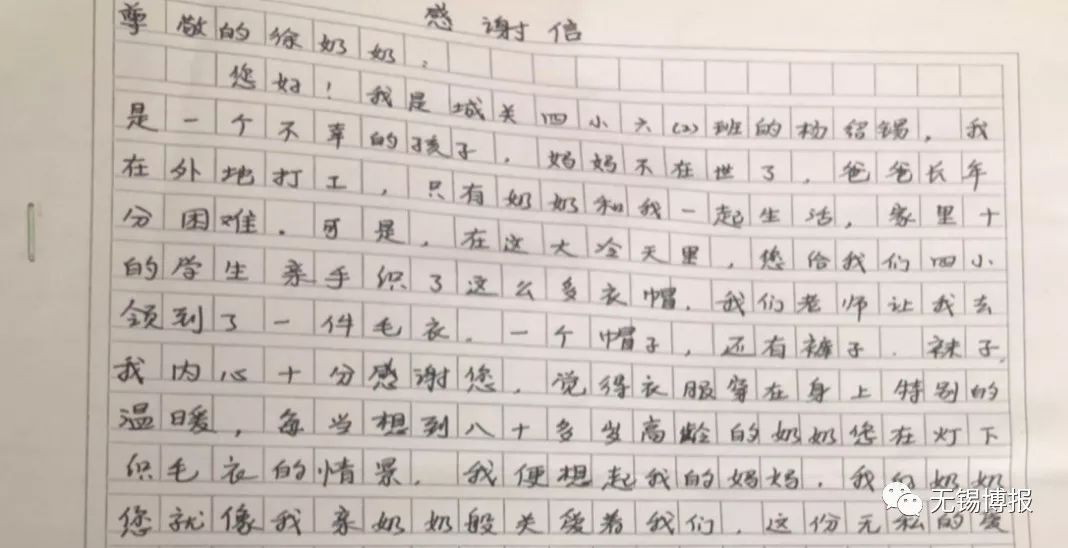 感谢信
尊敬的徐奶奶：
您好！我是城关四小六(2)班的杨绍锡，我
是一个不幸的孩子，妈妈不在世了，爸爸长年
在外地打工，只有奶奶和我一起生活，家里十
分困难。可是，在这大冷天里，您给我们四小
的学生亲手织了这么多衣帽，我们老师让我去
领到了一件毛衣，一个帽子，还有裤子、袜子，
我内心十分感谢您，觉得衣服穿在身上特别的
温暖，每当想到八十多岁高龄的奶奶您在灯下
织毛衣的情景，我便想起我的妈妈，我的奶奶
您就像我亲奶奶般关爱着我们，这份无私的爱
无锡博报